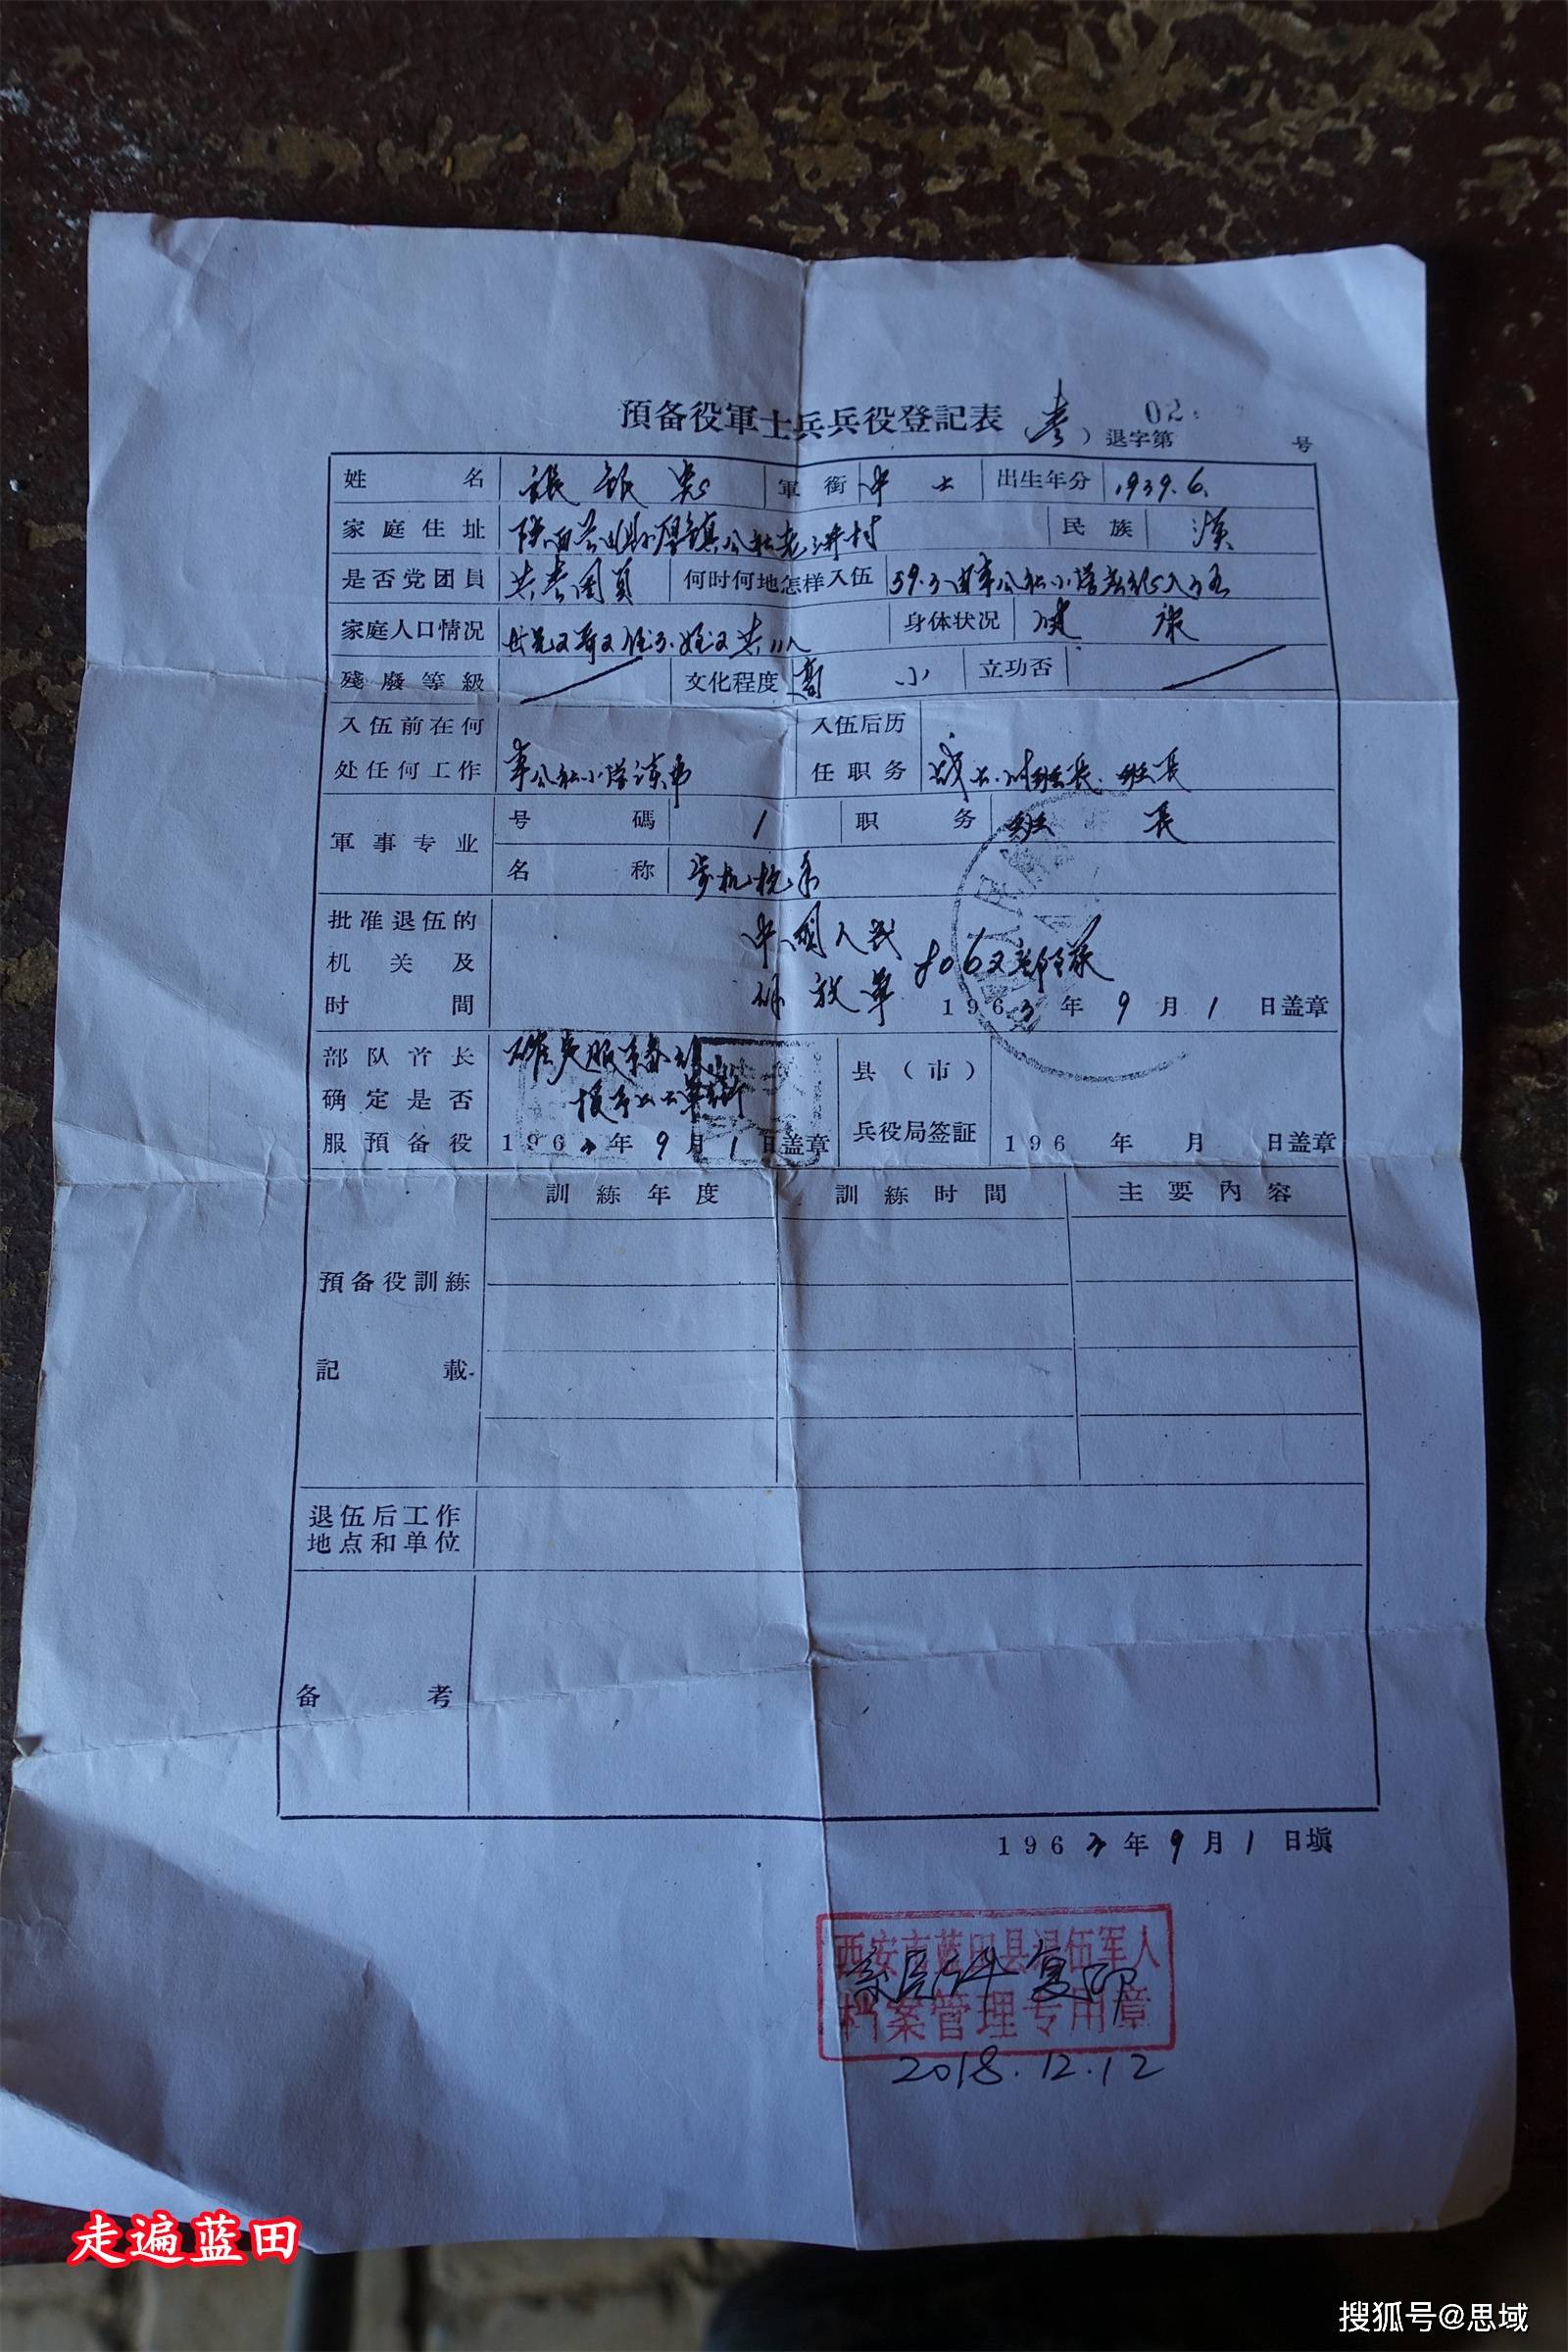 預备役軍士兵兵役登記表 ）退字第 02 号
姓名 張 軍銜 中士 出生年分 1939.6.
家庭住址 陕西 田县 厚镇公社老 村 民族 漢
是否党团員 共青团員 何时何地怎样入伍 59.3 本公社小学 入伍
家庭人口情况 身体状况 健康
殘廢等級 文化程度 高小 立功否
入伍前在何 入伍后历
处任何工作 本公社小学读书 任职务 战士.付班長.班長
軍事专业 号碼 1 职务 班長
名称 步机枪手
批准退伍的 中國人民
机关及 解放軍 8062部隊
时間 1963年9月1日盖章
部队首长 確定服予备役
确定是否 授予上士軍銜 县（市）
服預备役 1963年9月1日盖章 兵役局签証 196 年 月 日盖章
訓練年度 訓練时間 主要內容
預备役訓練
記載
退伍后工作
地点和单位
备考
1963年9月1日塡
西安市蓝田县退伍军人
系原件复印
档案管理专用章
2018.12.12
走遍蓝田
搜狐号@思域